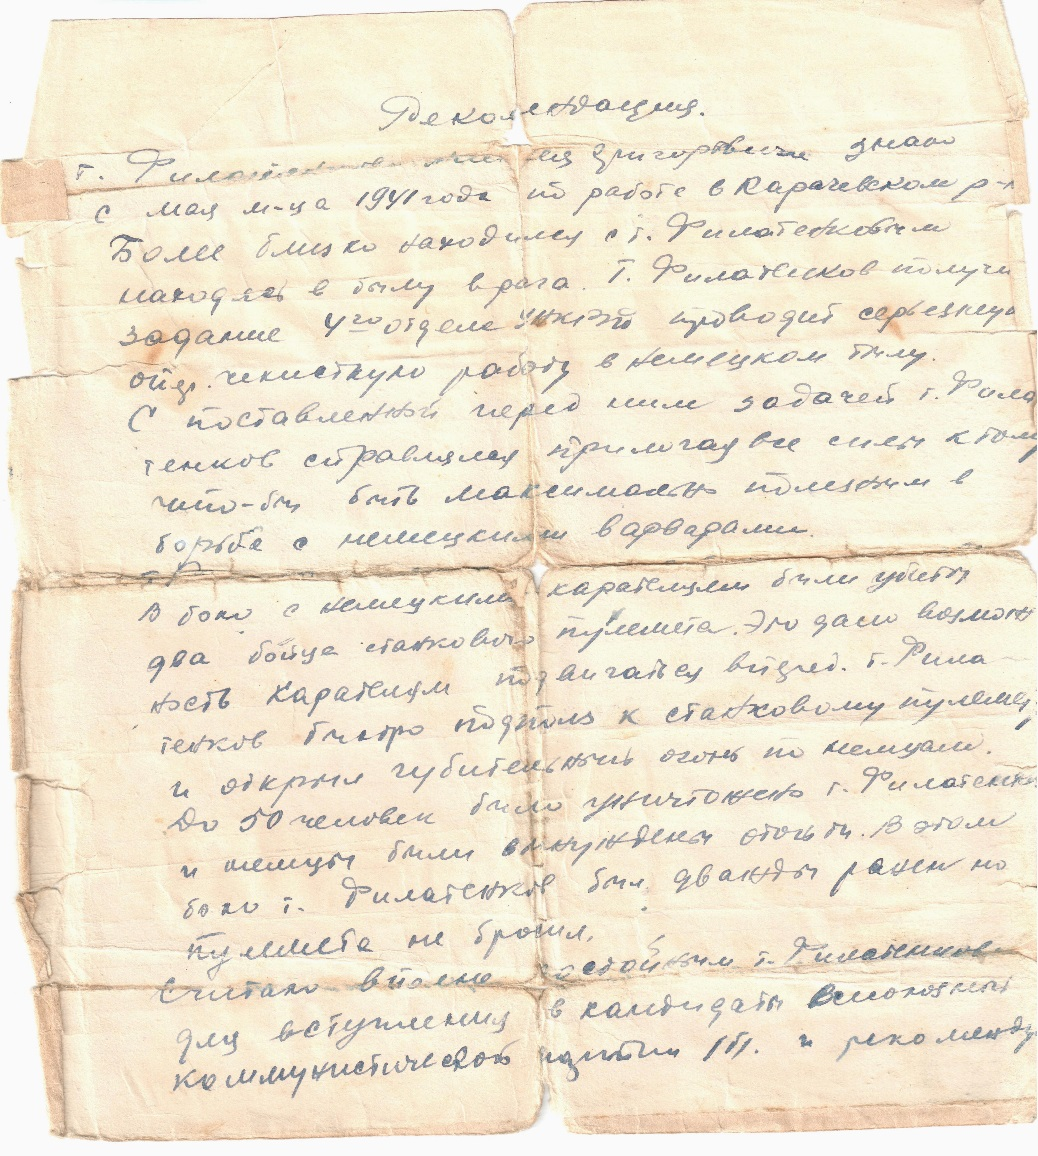 Рекомендация.
т. Филатенкова Григорьевича знаю
с мая м-ца 1941 года по работе в Карачевском р-н
Более близко находился с т. Филатенковым
находясь в тылу врага. Т. Филатенков получи
задание 4го отдела УНКГБ проводит серьезную
опер. чекисткую работу в немецком тылу.
С поставленной перед ним задачей т. Фила
тенков справлялся прилогая все силы к тому
что-бы быть максимально полезным в
борьбе с немецкими варварами.
В бою с немецкими карателями были убиты
два бойца станкового пулемета. Это дало возмож
ность карателям подвигаться вперед. т. Фила-
тенков быстро подполз к станковому пулемету
и открыл губительный огонь по немцам.
До 50 человек было уничтожено т. Филатенко
и немцы были вынуждены отойти. В этом
бою т. Филатенков был дважды ранен но
пулемета не бросил.
Считаю вполне достойным т. Филатенкова
для вступления в кандидаты всесоюзный
коммунистической партии /б/. и рекоменду